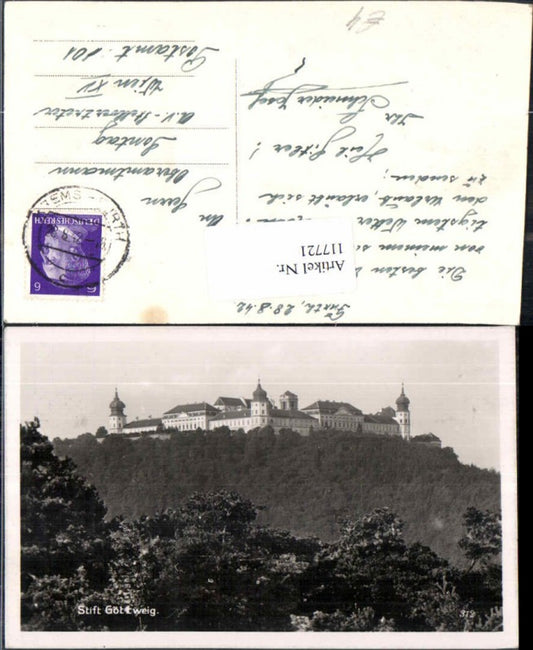 Furth, 28.8.42
Die besten
von meinem
tigstem Wetter
den Urlaub, erlaubt sich
zu senden;
Heil Hitler!
Ihr
Schmieder Josef
An
Herrn
Oberamtmann
Sontag
Wien XV
Postamt 101
DEUTSCHES REICH
6 6
Artikel Nr.
117721
Stift Göttweig.
319